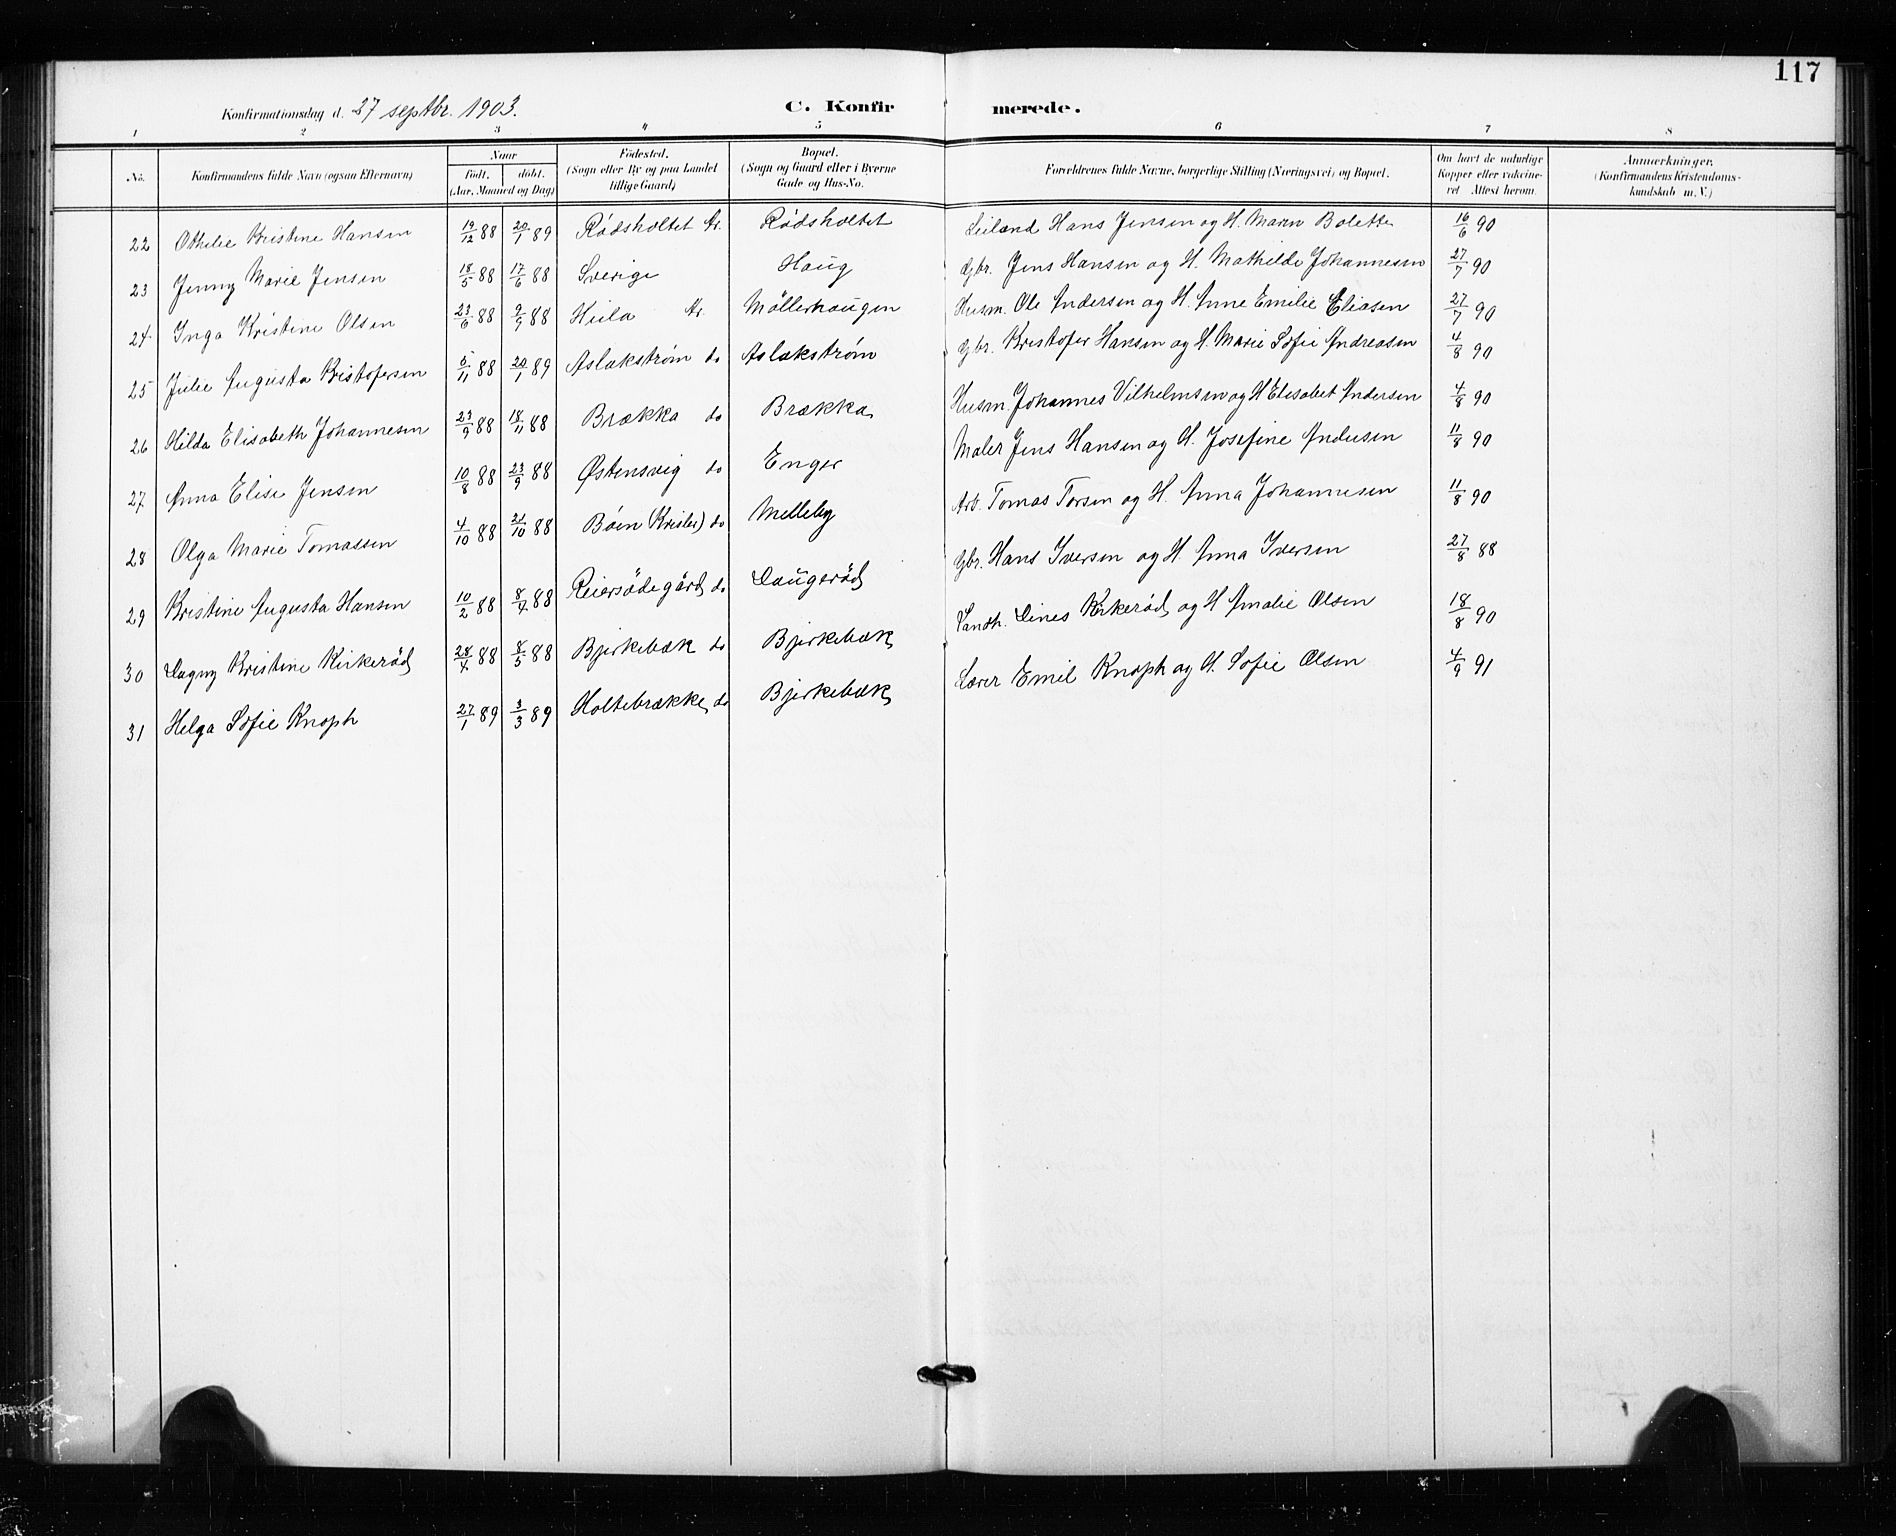 117
Konfirmationsdag d. 27 septbr. 1903. C. Konfir merede.
1 2 3 4 5 6 7 8
No. Konfirmandens fulde Navn (ogsaa Efternavn) Naar Født. døbt. (Aar, Maaned og Dag) Fødested. (Sogn eller By og paa Landet tillige Gaard) Bopæl. (Sogn og Gaard eller i Byerne Gade og Hus-No. Forældrenes fulde Navne, borgerlige Stilling (Næringsvei) og Bopæl. Om havt de naturlige Kopper eller vakcineret Attest herom. Anmærkninger. (Konfirmandens Kristendomskundskab m. V.)
22 Othilie Kristine Hansen 19/12 88 20/1 89 Rødsholtet Kr. Rødsholtet Leilænd Hans Jensen og H. Maren Bolette 16/6 90
23 Jenny Marie Jensen 18/5 88 17/6 88 Sverige Haug Gbr. Jens Hansen og H. Mathilde Johannesen 27/7 90
24 Inga Kristine Olsen 23/6 88 9/9 88 Hiila Kr. Möllerhaugen Husm. Ole Andersen og H. Anne Emilie Eliasen 27/7 90
25 Julie Augusta Kristofersen 5/11 88 20/1 89 Aslakstrøm do Aslakstrøm Gbr. Kristofer Hansen og H. Marie Sofie Andreasen 4/8 90
26 Hilda Elisabeth Johannesen 23/9 88 18/11 88 Brækka do Brækka Husm. Johannes Vilhelmsen og H Elisabet Andersen 4/8 90
27 Anna Elise Jensen 10/8 88 23/9 88 Østensvig do Enger Maler Jens Hansen og H. Josefine Andersen 11/8 90
28 Olga Marie Tomassen 4/10 88 21/10 88 Böen do Melleby Arb. Tomas Torsen og H. Anna Johannesen 11/8 90
29 Kristine Augusta Hansen 10/2 88 8/4 88 Reiersödegård do Laugeröd Gbr. Hans Iversen og H. Anna Iversen 27/8 88
30 Dagny Kristine Kirkerød 28/4 88 8/5 88 Bjerkebæk do Bjerkebæk Landh. Lines Kirkerød og H Amalie Olsen 18/8 90
31 Helga Sofie Knoph 27/1 89 3/3 89 Holtebrække do Bjerkebæk Lærer Emil Knoph og H. Sofie Olsen 4/9 91